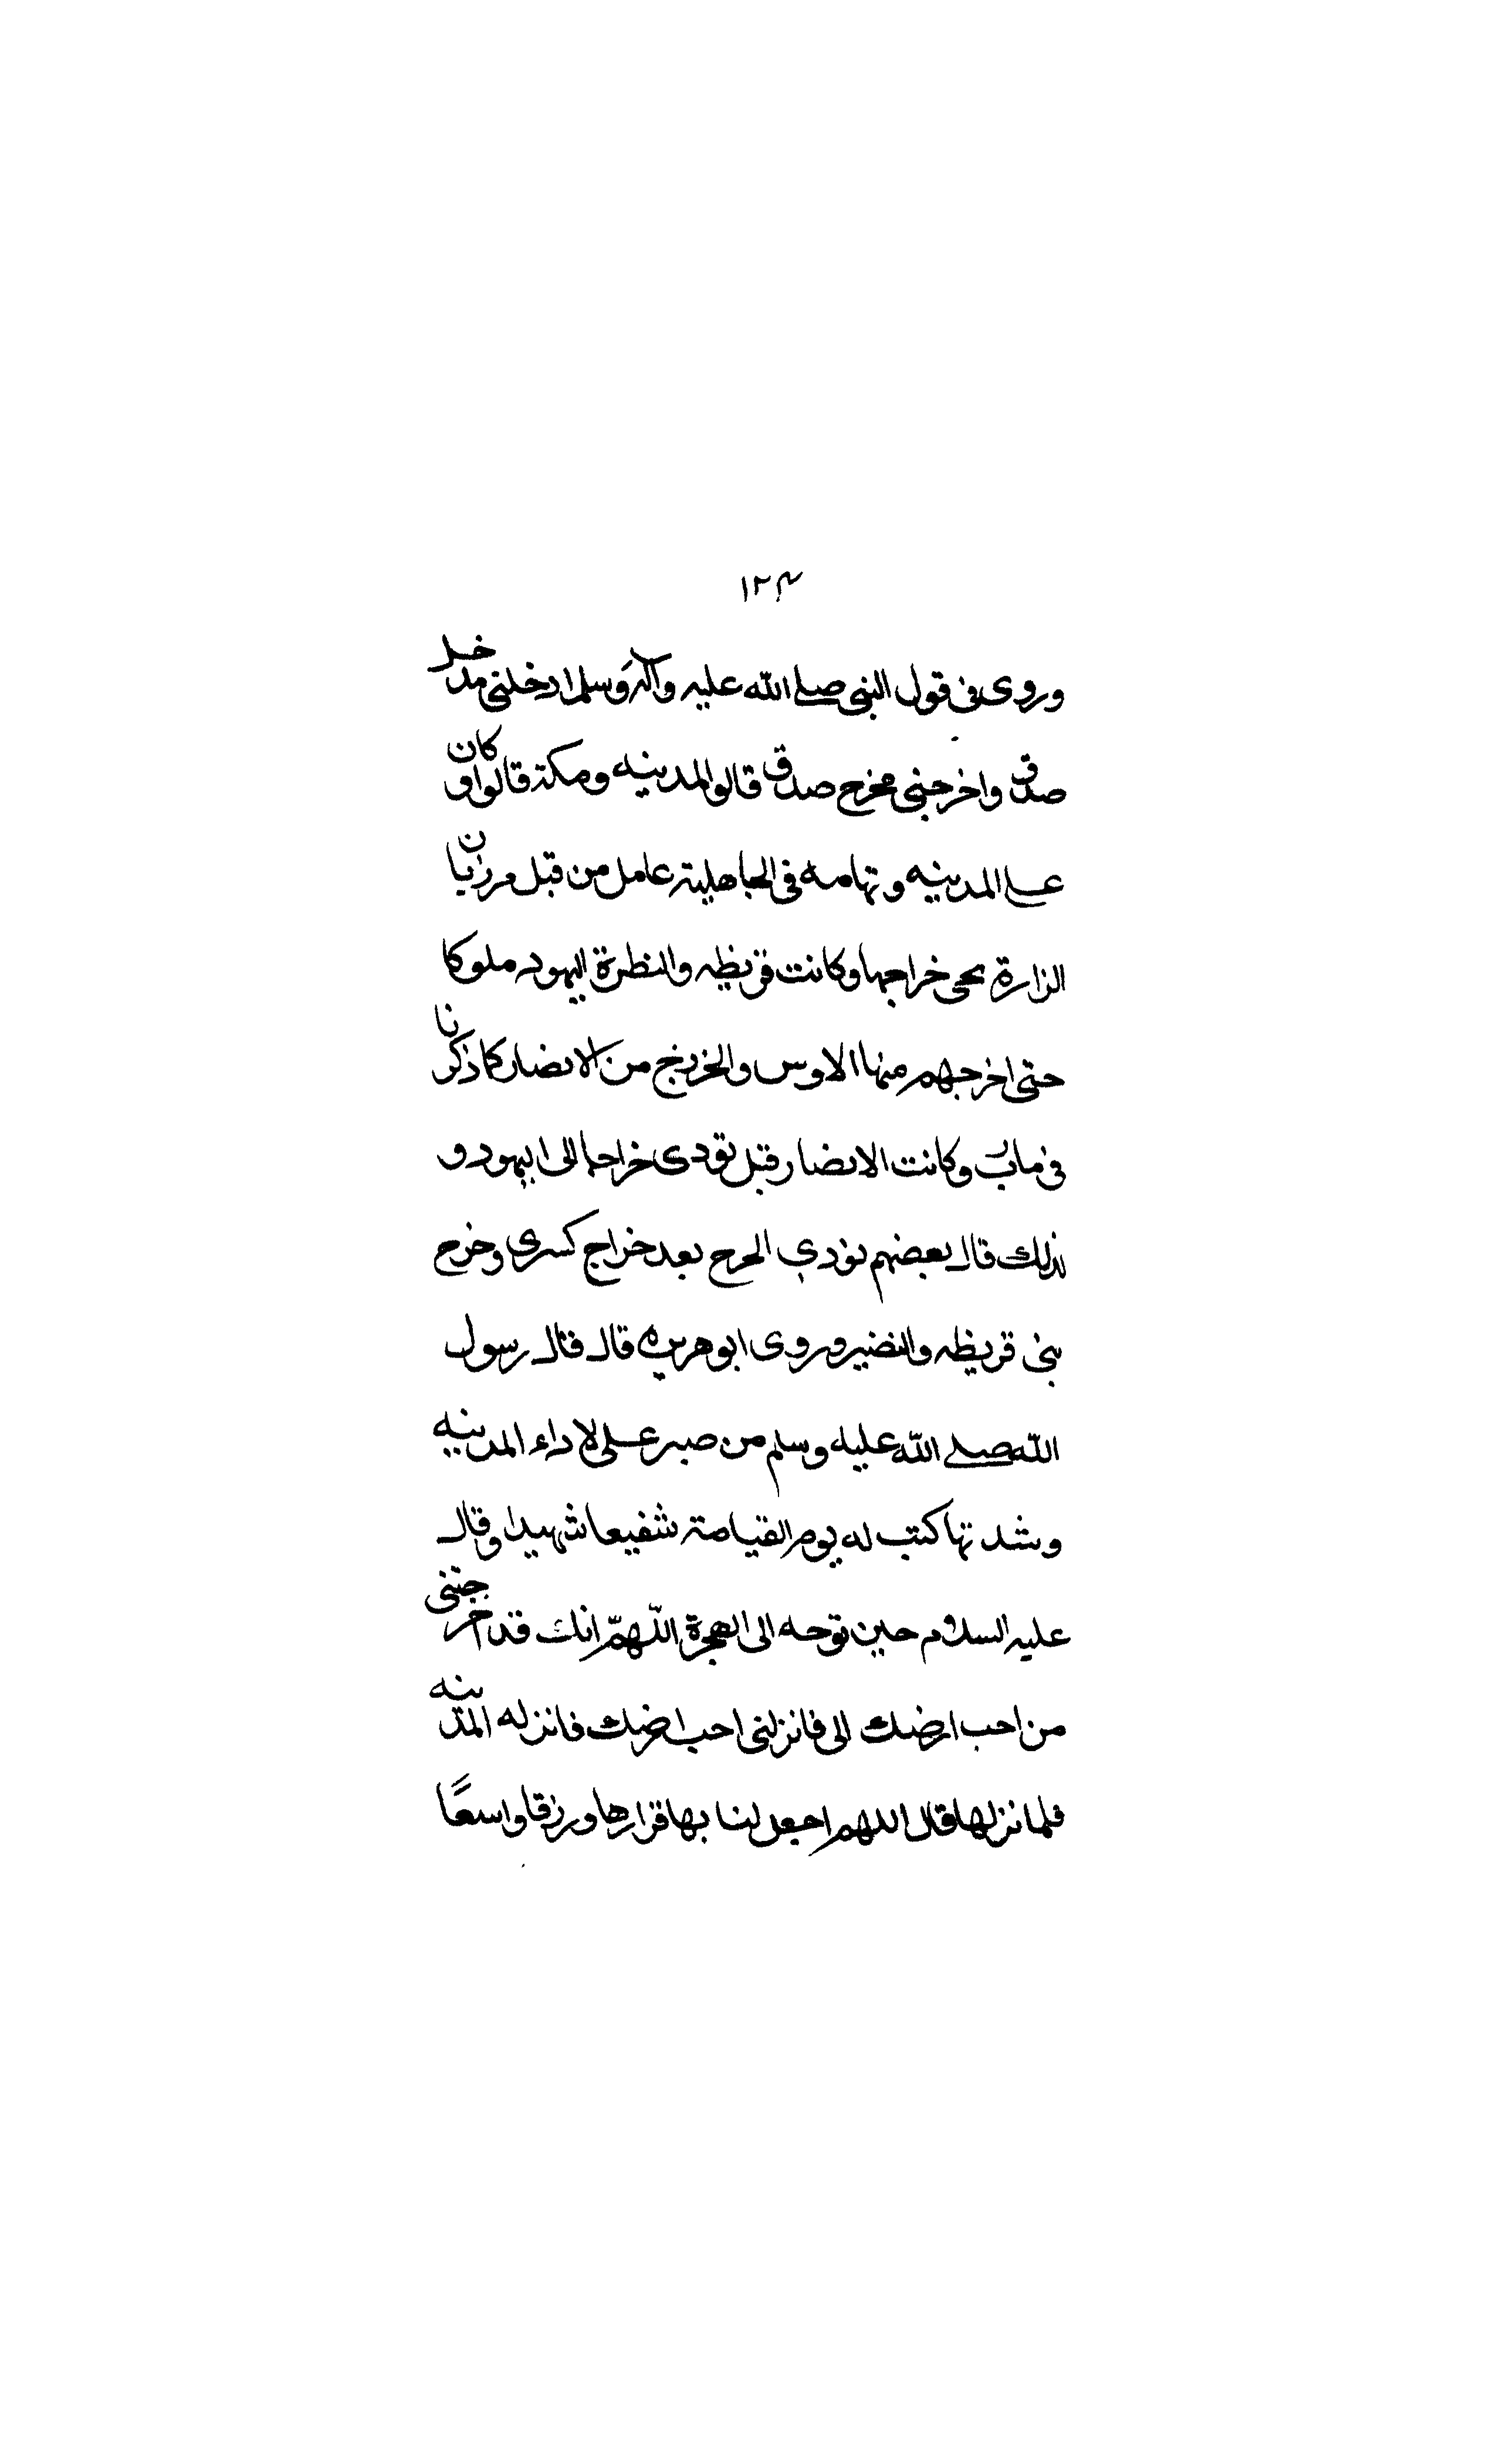 ١٢٣
وروى فى قول النبى صلے الله عليه وآله وسلم ادخلنى مدخل
صدق واخرجنى مخرج صدق قالو المدينه ومكة قالوا وكان
علے المدينه وتهامه فى الجاهلية عامل من قبل مرزبان
الزارة يجى خراجها وكانت قريظه والنظرة اليهود ملوكا
حتى اخرجهم منها الاوس والخزرج من الانصار كما ذكرنا
فى مارب وكانت الانصار قبل تودى خراجا الى اليهود و
لذلك قال بعضهم نودي الخرج بعد خراج كسرى وخرج
بنى قريظه والنضير وروى ابو هريره قال قال رسول
الله صلے الله عليه وسلم من صبر على لاداء المدينه
وشدتها كنت له يوم القيامة شفيعا شهيدا وقال
عليه السلام حين توجه الى الهجرة اللّهمّ انك قد اخرجتنى
من احب ارضك الى فانزلنى احب ارضك فانزله المدينه
فلما نزلها قال اللهم اجعل لنا بها قرارها ورزقا واسعًا